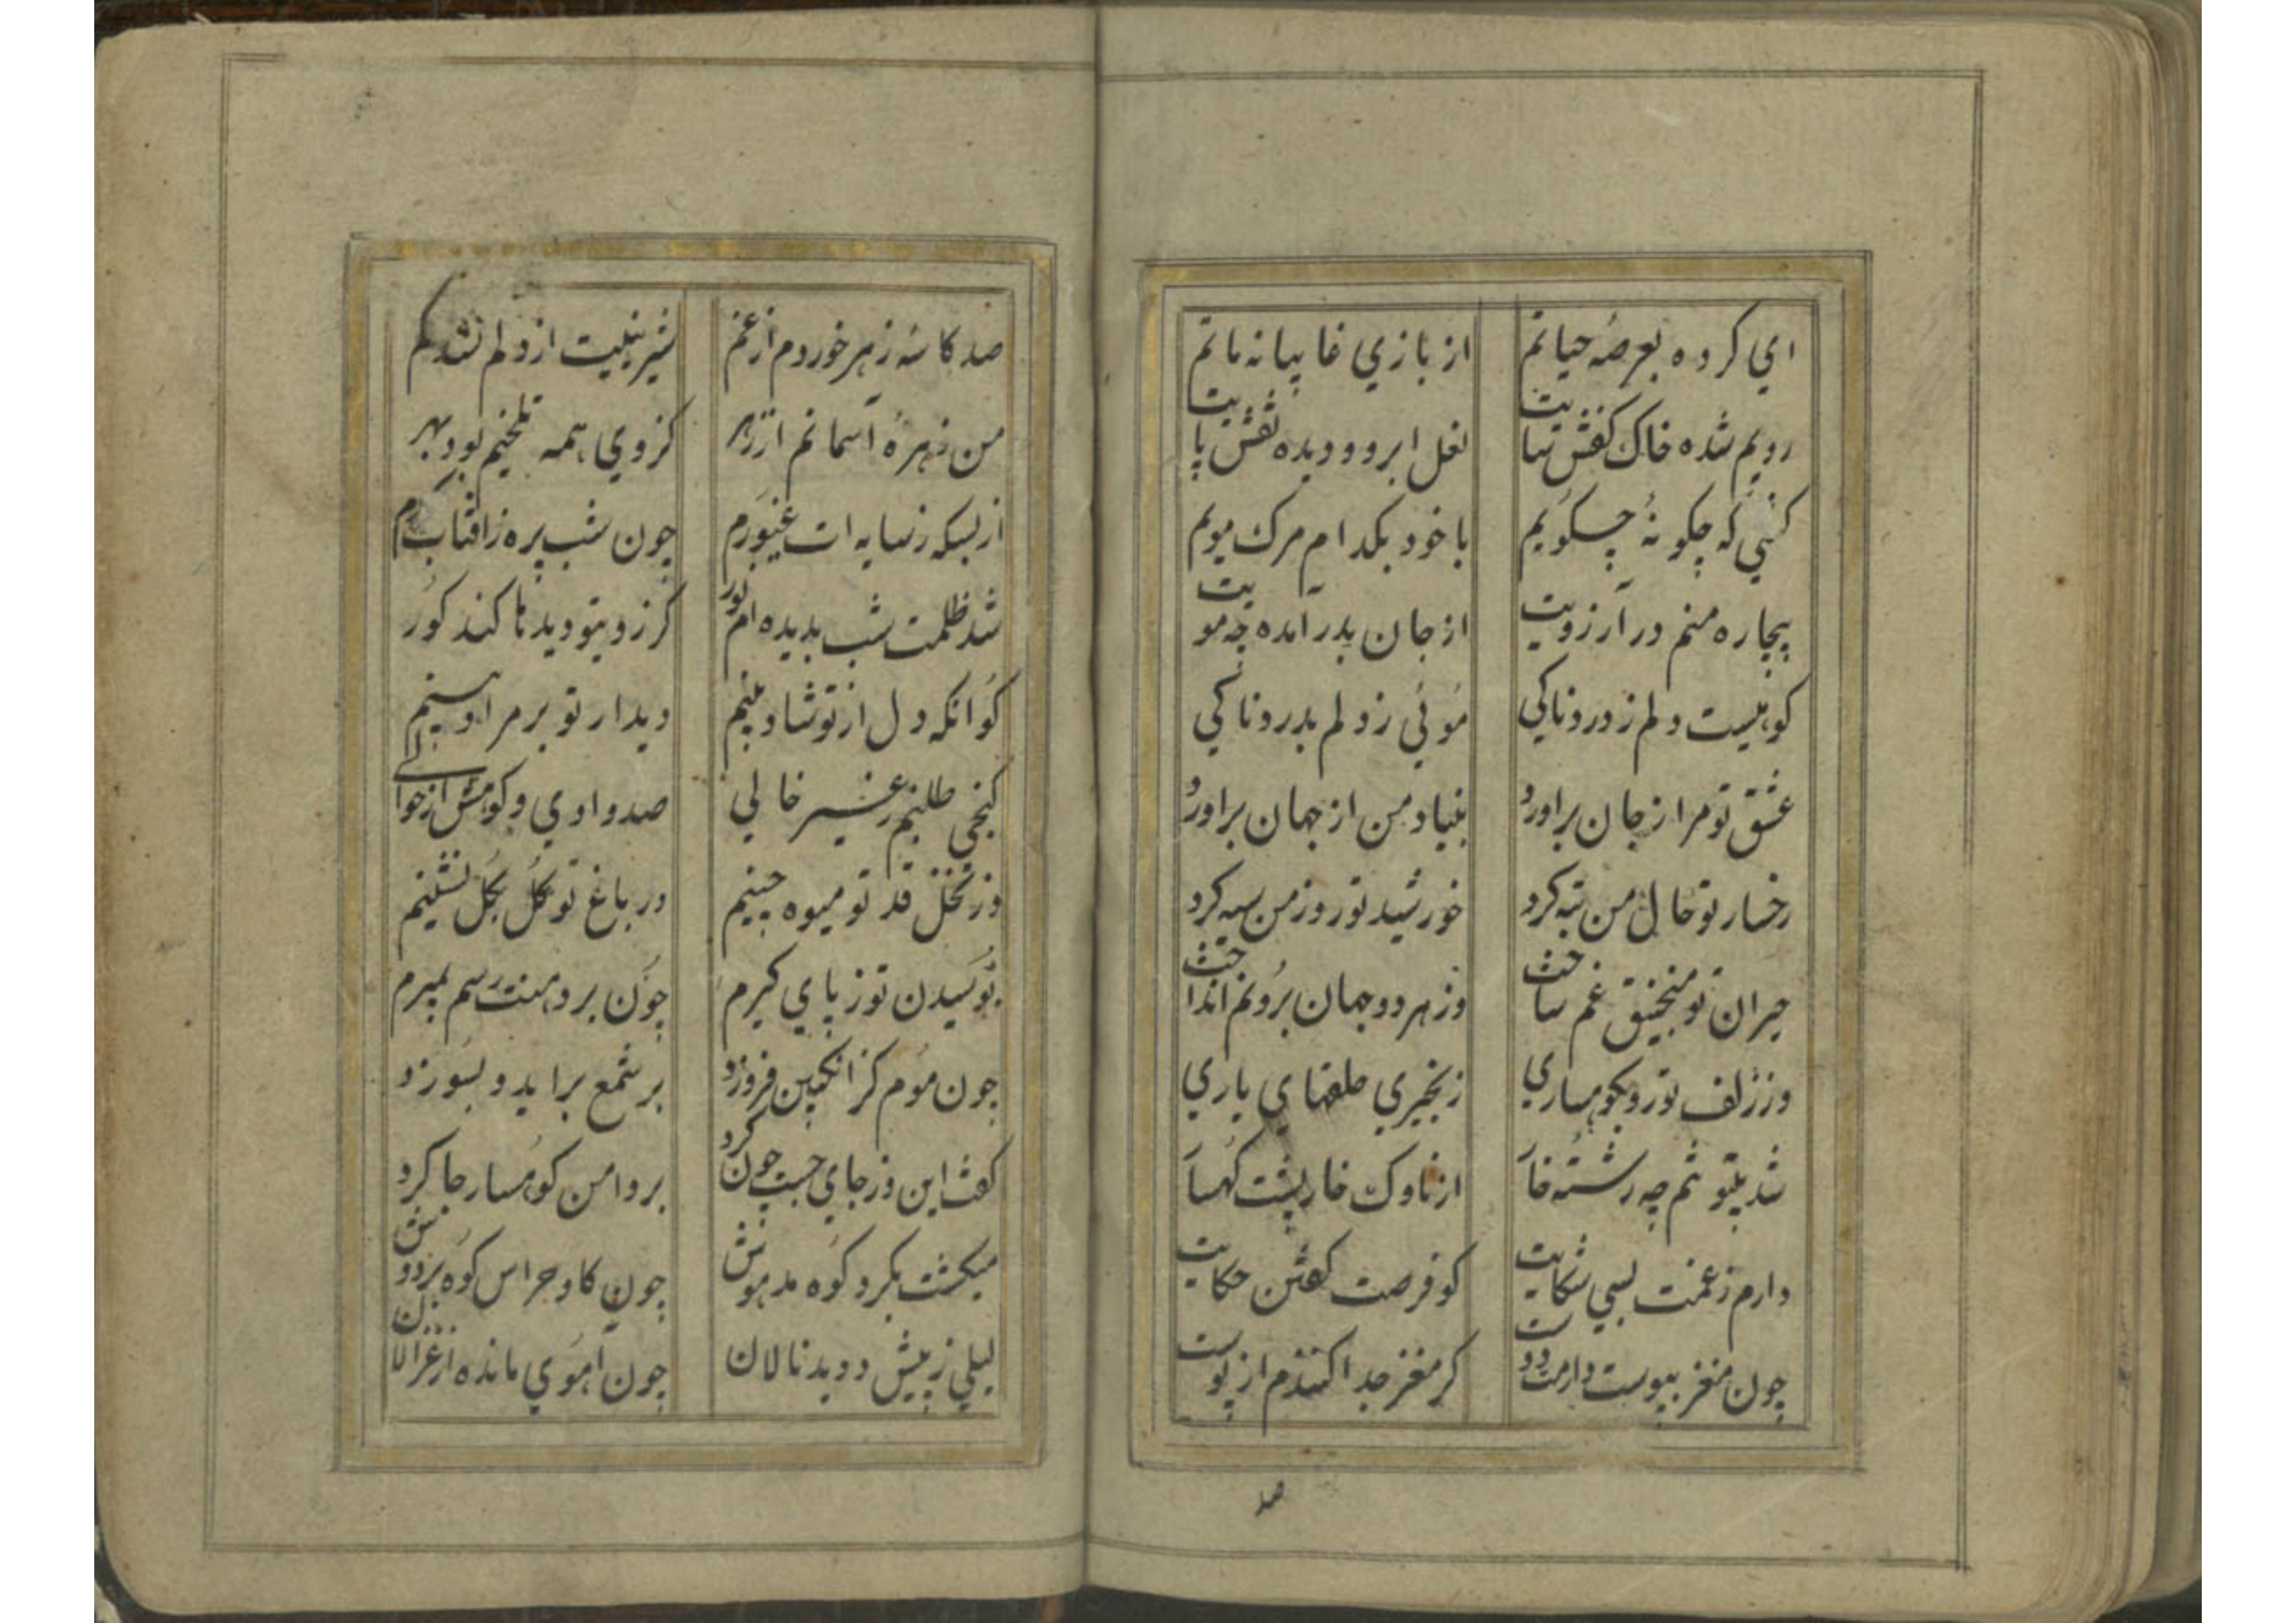 اي کرده بعرصه حیاتم از بازي غایبانه ماتم
رویم شده خاک کفش پایت لعل ابرو و دیده نقش پایت
کنی که چکونهٔ چسکویم با خود بکدام مرک مویم
بیچاره منم در آرزویت از جان بدر آمده چه مویت
کوهیست دلم ز دردناکي موئی ز دلم بدردناکي
عشق تو مرا ز جان براورد بنیاد من از جهان براورد
رخسار تو حال من تبه کرد خورشید تو روز من سیه کرد
حیران تو منجنیق غم ساخت وز هر دو جهان برونم انداخت
وز زلف تو رو بکوهساري زنجیري حلقهاي یاري
شد بیتو تنم چه رشته خار از ناوک خارپشت کهسار
دارم ز غمت بسي شکایت کو فرصت کفتن حکایت
چون مغز بپوست دارمت دوست کر مغز جدا کنندم از پوست
صد
صد کاسه زهر خوردم از غم شیرینیت از دلم نشد کم
من زهرهٔ آسمانم از زهر کز وي همه تلخیم بود بهر
از بسکه ز سایه ات غیورم چون شب پره ز افتاب کورم
شد ظلمت شب بدیده ام نور کز رو بتو دیدنا کند کور
کو انکه دل از تو شاد بینم دیدار تو بر مراد بینم
کنجی طلبیم ز غیر خالي صد داوري و کومش از حوالے
وز نخل قد تو میوه چینیم در باغ تو کل بکل نشینیم
بوسیدن تو ز پاي کیرم چون بر دهنت رسم بمیرم
چون موم کز انکبین فروزد بر شمع براید و بسوزد
کفت این و ز جاي جست چون کرد بر دامن کوهسار جا کرد
میکشت بکرد کوه مدهوش چون کاو حراس کوه بر دوش
لیلي ز پیش دوید نالان چون آهوي مانده از غزالان